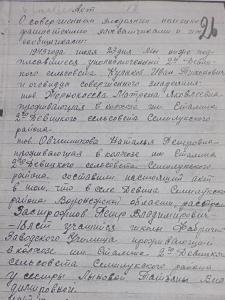 Акт
26
О совершенном злодеянии немецко-
фашистскими захватчиками и их
сообщниками.
1943 года июля 23 дня мы ниже под-
писавшиеся уполномоченный 2го Деви-
цкого сельсовета Иван
и очевидцы совершенного злодеяния:
тов. Матрена Яковлевна
проживающая в колхозе им Сталина
2го Девицкого сельсовета Семилукского
района
тов. Овчинникова Наталья Петровна
проживающая в колхозе им Сталина
2го Девицкого сельсовета Семилукского
района составили настоящий акт
в том, что в селе Девица Семилукского
района Воронежской области расстрелян
Владимирович
18 лет учащийся школы Фабрично
Заводского Училища проживающий
в колхозе им Сталина 2го Девицкого
сельсовета Семилукского района
у сестры Татьяны Вла-
димировной